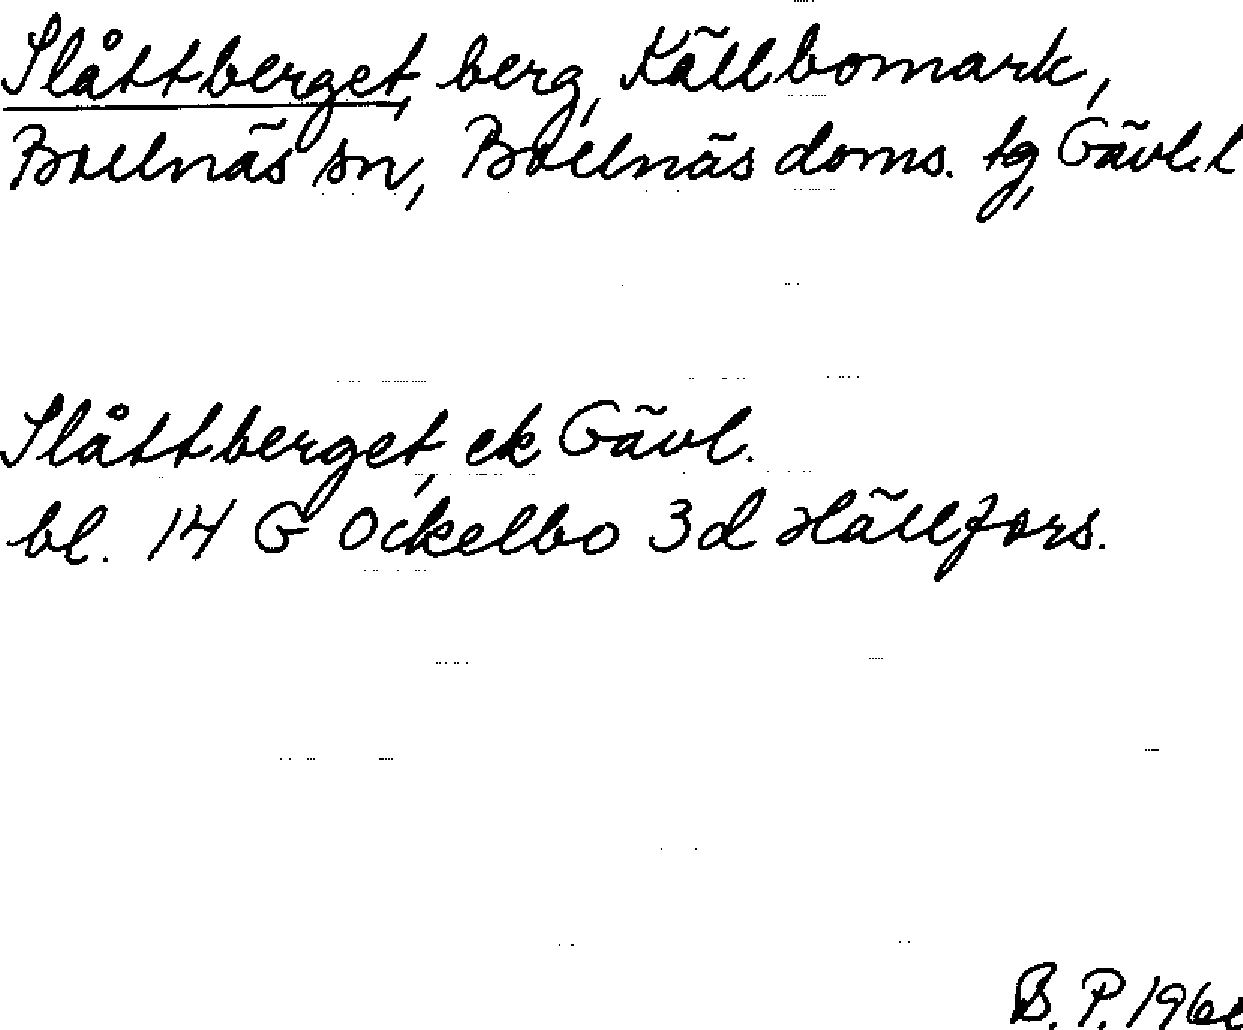 Slåttberget, berg, Källbomark,
Bollnäs sn, Bollnäs doms. tg, Gävl.l
Slåttberget, ek Gävl.
bl. 14 G Ockelbo 3d Hällfors.
B. P. 196